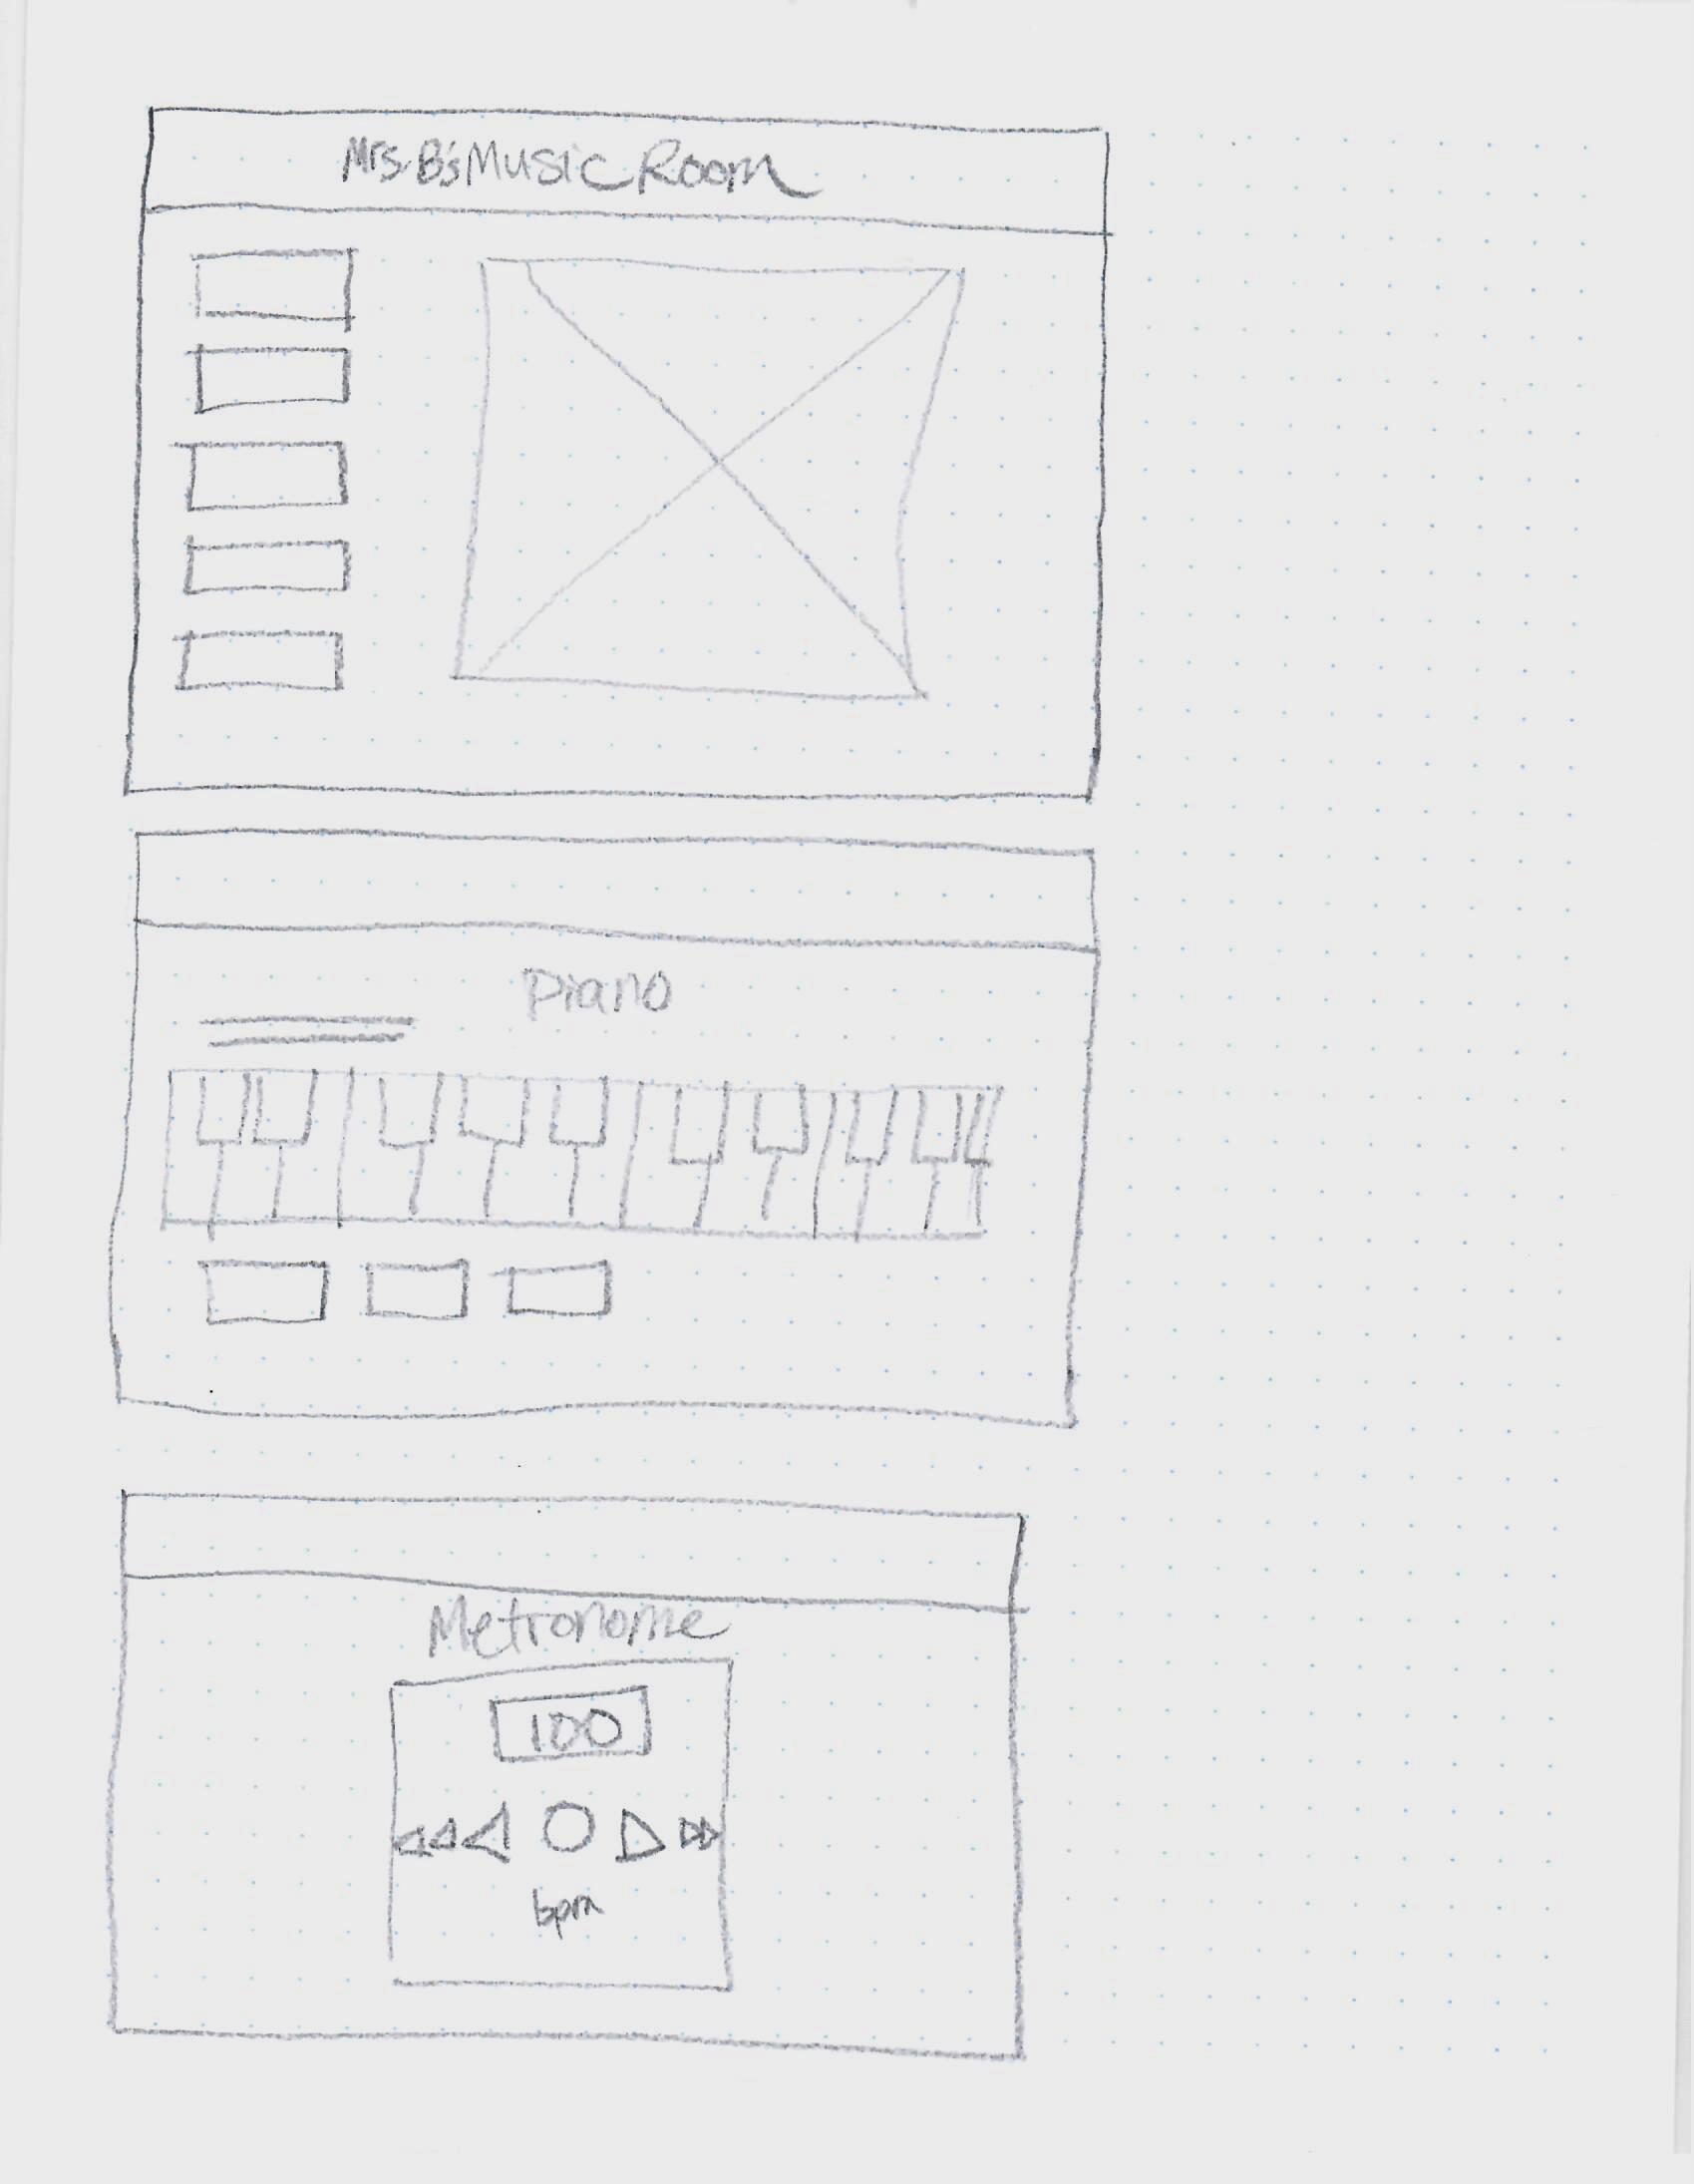 Mrs. B's Music Room
Piano
Metronome
100
bpm